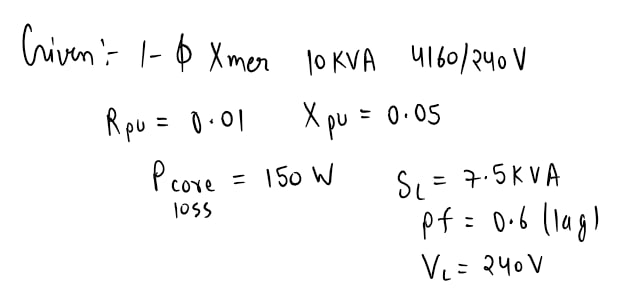 Given:- 1-ϕ Xmer 10 KVA 4160/240 V
Rpu = 0.01 Xpu = 0.05
Pcore loss = 150 W
SL = 7.5 KVA
pf = 0.6 (lag)
VL = 240 V